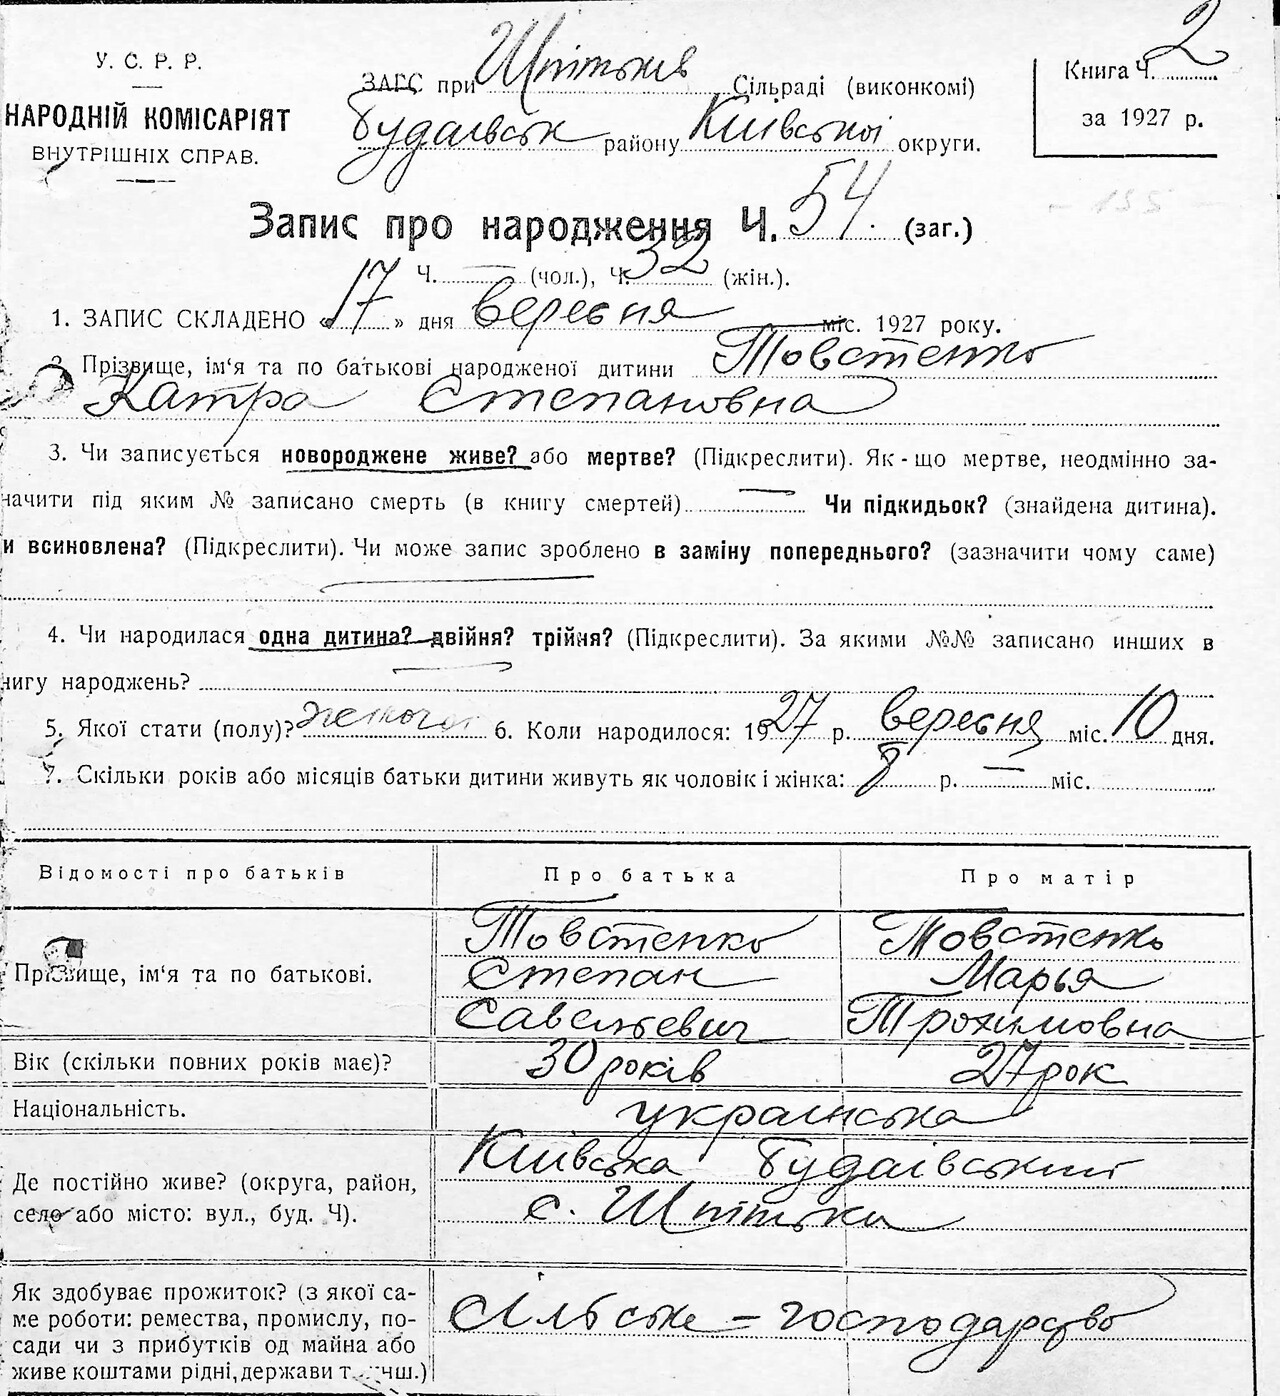 У. С. Р. Р.
НАРОДНІЙ КОМІСАРІЯТ
ВНУТРІШНІХ СПРАВ.
ЗАГС при Шпітьків Сільраді (виконкомі)
Будаївськ району Київської округи.
Книга Ч. 2
за 1927 р.
Запис про народження Ч. 54. (заг.)
Ч. — (чол.), Ч. 32 (жін.).
1. ЗАПИС СКЛАДЕНО «17» дня вересня міс. 1927 року.
2. Прізвище, ім'я та по батькові народженої дитини Товстенко
Катра Степановна
3. Чи записується новороджене живе? або мертве? (Підкреслити). Як-що мертве, неодмінно за-
начити під яким № записано смерть (в книгу смертей) — Чи підкидьок? (знайдена дитина).
и всиновлена? (Підкреслити). Чи може запис зроблено в заміну попереднього? (зазначити чому саме)
4. Чи народилася одна дитина? двійня? трійня? (Підкреслити). За якими №№ записано инших в
нигу народжень? —
5. Якої стати (полу)? жіночої 6. Коли народилося: 1927 р. вересня міс. 10 дня.
7. Скільки років або місяців батьки дитини живуть як чоловік і жінка: 8 р. — міс.
Відомості про батьків Про батька Про матір
Прізвище, ім'я та по батькові.
Товстенко Товстенко
Степан Марья
Савельевич Трохимовна
Вік (скільки повних років має)? 30 років 27 рок
Національність. українська
Київська Будаівський
Де постійно живе? (округа, район,
село або місто: вул., буд. Ч). с. Шпітьки
Як здобуває прожиток? (з якої са-
ме роботи: ремества, промислу, по-
сади чи з прибутків од майна або
живе коштами рідні, держави т. инш.)
Сільське-господарство